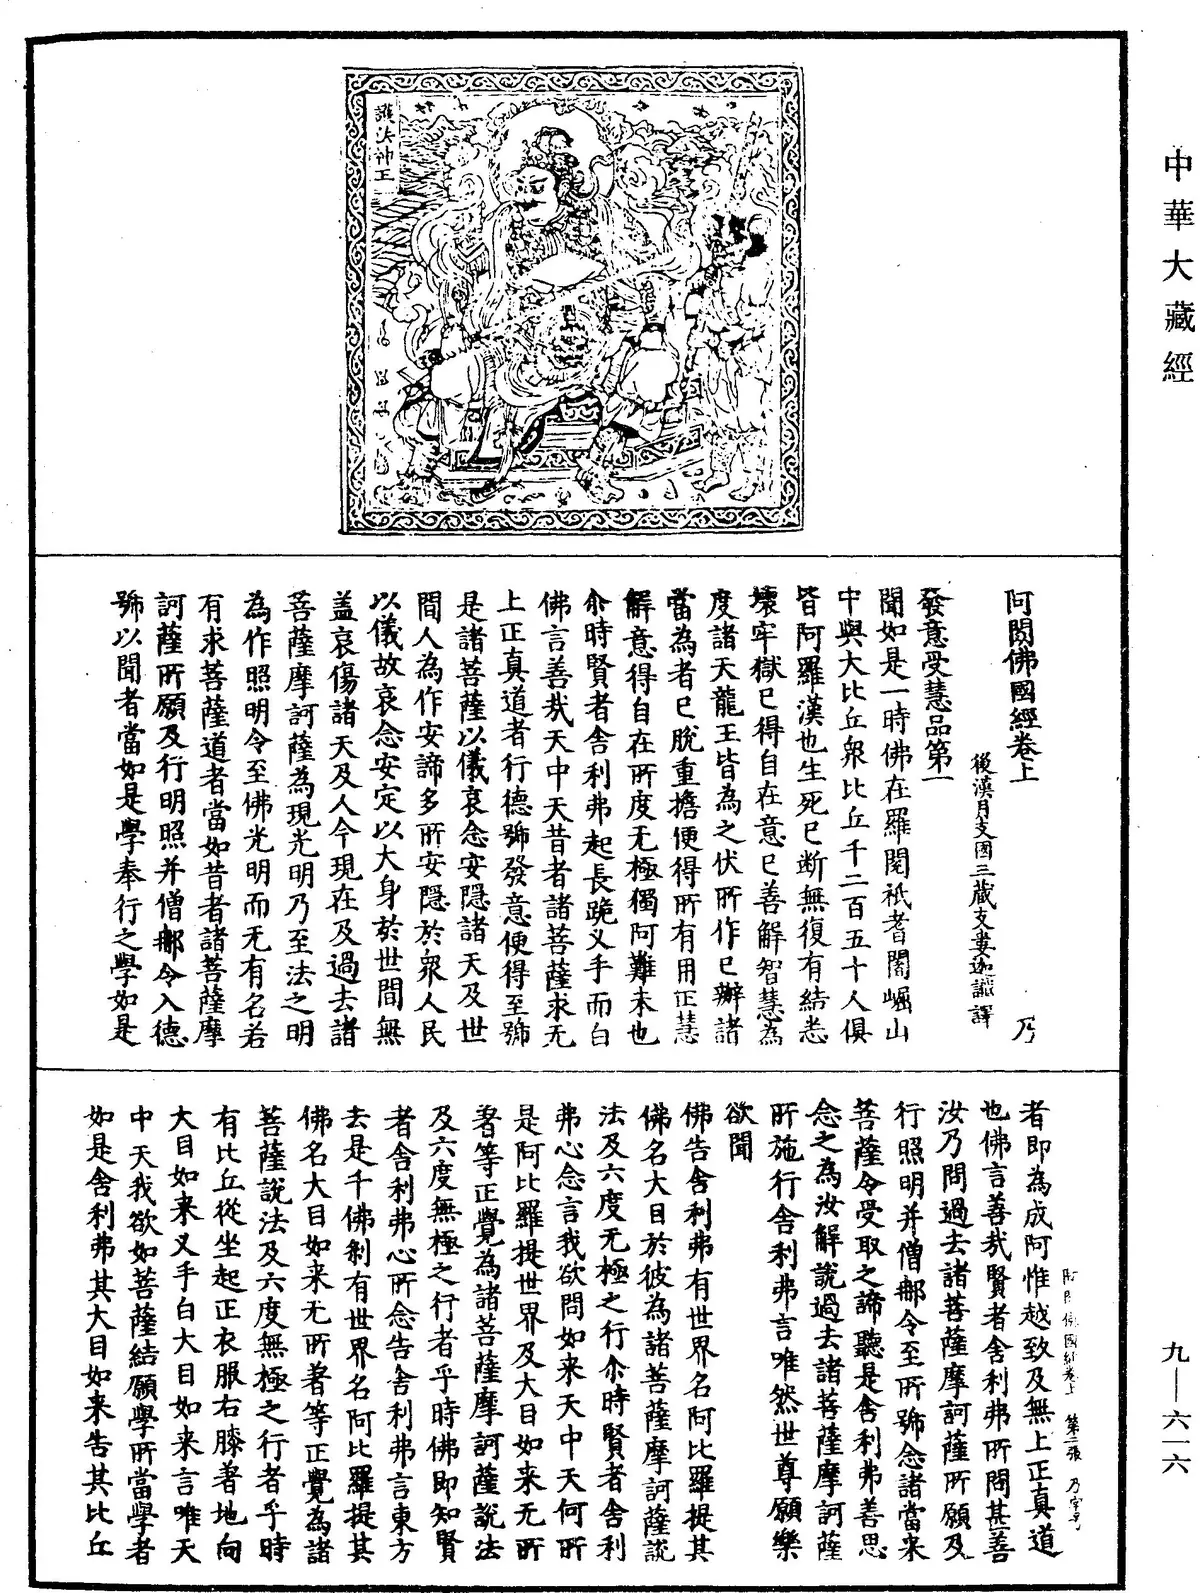 中華大藏經
護法神王
阿閦佛國經卷上 乃
後漢月支國三藏支婁迦讖譯
發意受慧品第一
聞如是一時佛在羅閱祇耆闍崛山
中與大比丘眾比丘千二百五十人俱
皆阿羅漢也生死已断無復有結悉
壞牢獄已得自在意已善解智慧為
度諸天龍王皆為之伏所作已辦諸
當為者已脫重擔便得所有用正慧
解意得自在所度无極獨阿難未也
尒時賢者舍利弗起長跪叉手而白
佛言善㢤天中天昔者諸菩薩求无
上正真道者行德號發意便得至號
是諸菩薩以儀哀念安隱諸天及世
間人為作安諦多所安隱於眾人民
以儀故哀念安定以大身於世間無
盖哀傷諸天及人今現在及過去諸
菩薩摩訶薩為現光明乃至法之明
為作照明令至佛光明而无有名若
有求菩薩道者當如昔者諸菩薩摩
訶薩所願及行明照并僧那令入德
號以聞者當如是學奉行之學如是
者即為成阿惟越致及無上正真道
也佛言善㢤賢者舍利弗所問甚善
汝乃問過去諸菩薩摩訶薩所願及
行照明并僧那令至所號念諸當来
菩薩令受取之諦聽是舍利弗善思
念之為汝解說過去諸菩薩摩訶薩
所施行舍利弗言唯然世尊願樂
欲聞
佛告舍利弗有世界名阿比羅提其
佛名大目於彼為諸菩薩摩訶薩說
法及六度无極之行尒時賢者舍利
弗心念言我欲問如来天中天何所
是阿比羅提世界及大目如来无所
著等正覺為諸菩薩摩訶薩說法
及六度無極之行者乎時佛即知賢
者舍利弗心所念告舍利弗言東方
去是千佛剎有世界名阿比羅提其
佛名大目如来无所著等正覺為諸
菩薩說法及六度無極之行者乎時
有比丘從坐起正衣服右膝著地向
大目如来叉手白大目如来言唯天
中天我欲如菩薩結願學所當學者
如是舍利弗其大目如来告其比丘
阿閦佛國經卷上 第二張 乃字号
九—六一六